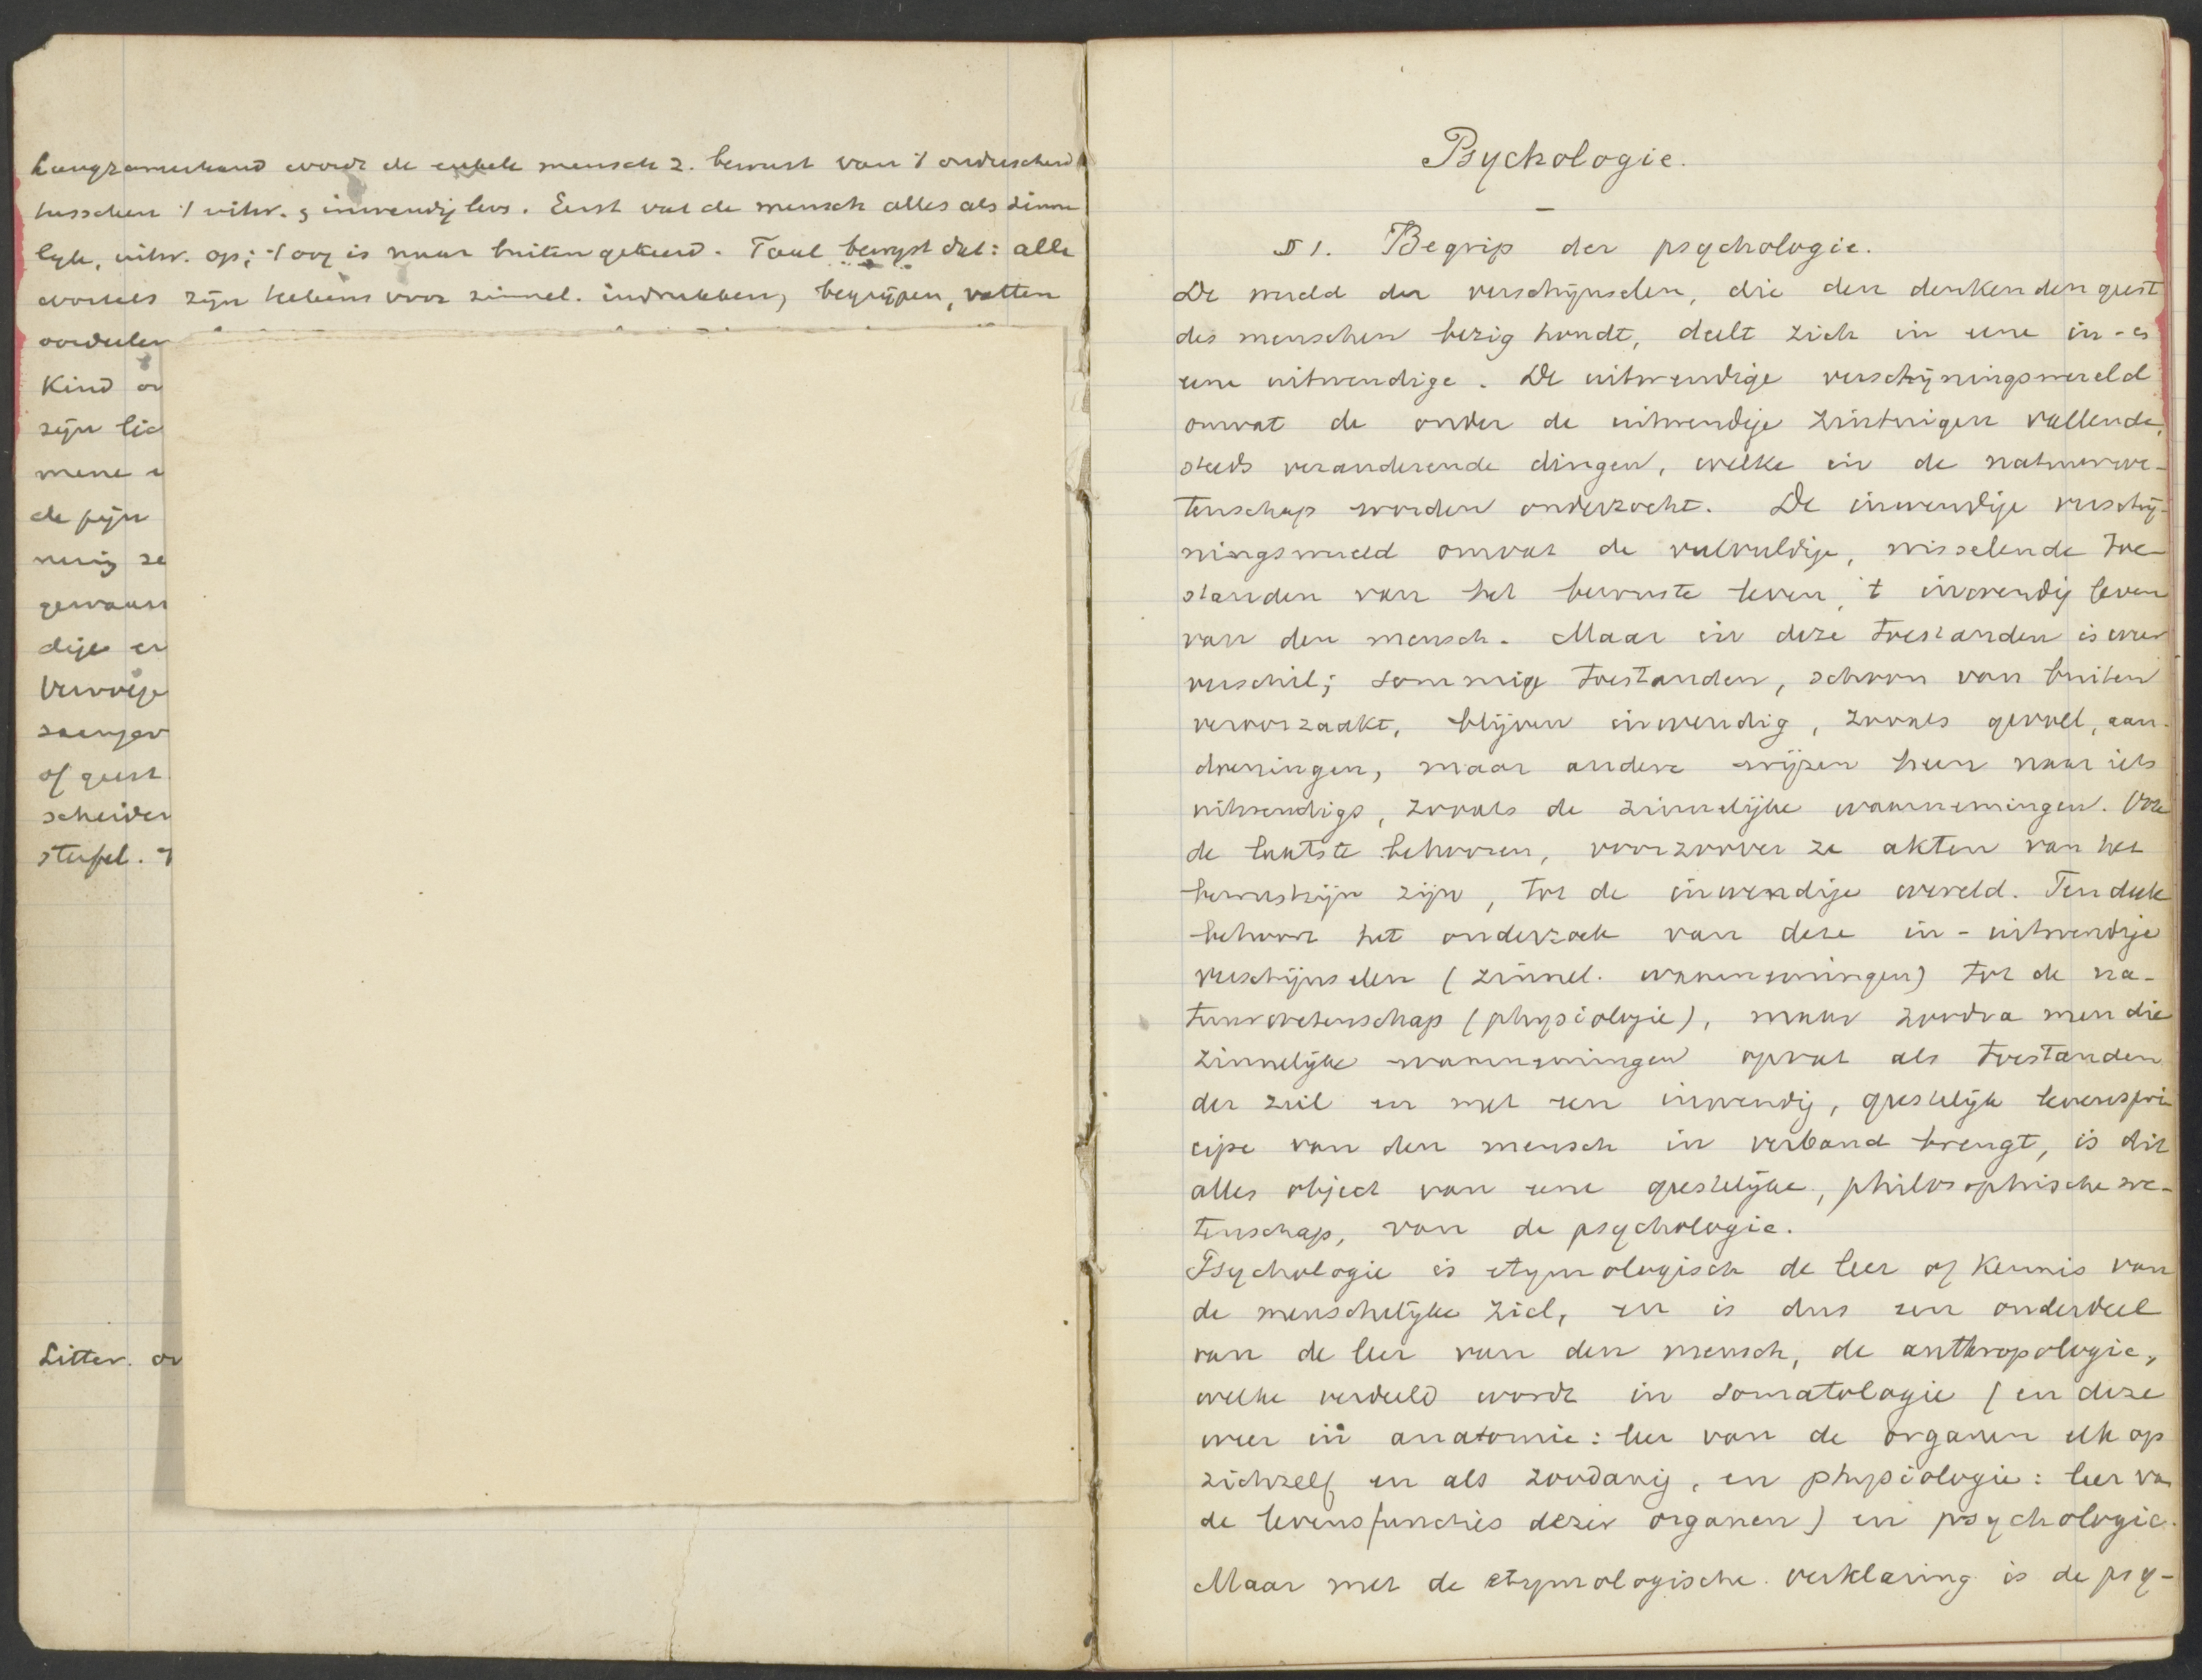 Langzamerhand wordt de enkele mensch z. bewust van 't onderscheid
tusschen 't uitw. & inwendig lev. Eerst vat de mensch alles als zinne
lyk, uitw. op; 't oog is naar buiten gekeerd. Taal bewyst dat: alle
wortels zyn teekens voor zinnel. indrukken, begrijpen, vatten
oordeelen
Kind on
zijn lic
mene
de pijn
nig ze
gewaar
dige en
Verwijs
of geest
scheiden
stoffel. 't
Litter. ov
Psychologie.
§ 1. Begrip der psychologie.
De wereld der verschijnselen, die den denkenden geest
des menschen bezig houdt, deelt zich in eene in- &
eene uitwendige. De uitwendige verschijningswereld
omvat de onder de uitwendige zintuigen vallende,
steeds veranderende dingen, welke in de natuurwe-
tenschap worden onderzocht. De inwendige verschij-
ningswereld omvat de veelvuldige, wisselende toe-
standen van het bewuste leven, 't inwendig leven
van den mensch. Maar in deze toestanden is weer
verschil; sommige toestanden, schoon van buiten
veroorzaakt, blijven inwendig, zooals gevoel, aan-
doeningen, maar andere wijzen heen naar iets
uitwendigs, zooals de zinnelijke waarnemingen. Ook
de laatste behooren, voorzoover ze akten van het
bewustzijn zijn, tot de inwendige wereld. Ten deele
behoort het onderzoek van deze in- uitwendige
verschijnselen (zinnel. waarnemingen) tot de na-
tuurwetenschap (physiologie), maar zoodra men die
zinnelijke waarnemingen opvat als toestanden
der ziel en met een inwendig, geestelijk levensprin
cipe van den mensch in verband brengt, is dit
alles object van eene geestelijke, philosophische we-
tenschap, van de psychologie.
Psychologie is etymologisch de leer of kennis van
de menschelijke ziel, en is dus een onderdeel
van de leer van den mensch, de anthropologie,
welke verdeeld wordt in somatologie (en deze
weer in anatomie: leer van de organen elk op
zichzelf en als zoodanig, en physiologie: leer van
de levensfuncties dezer organen) en psychologie.
Maar met de etymologische verklaring is de psy-